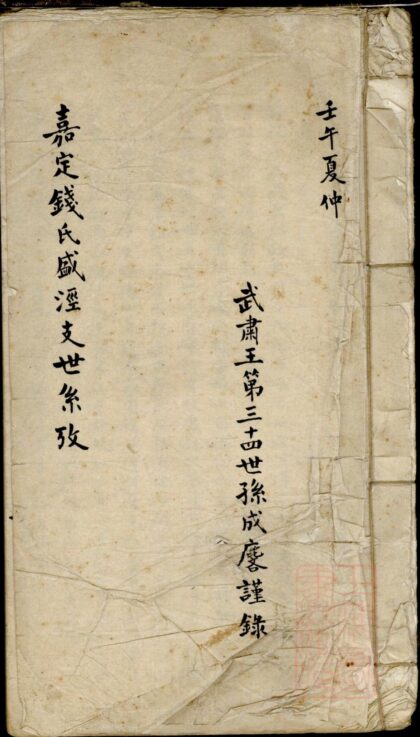 壬午夏仲
武肅王第三十四世孫成麐謹錄
嘉定錢氏盛涇支世系攷